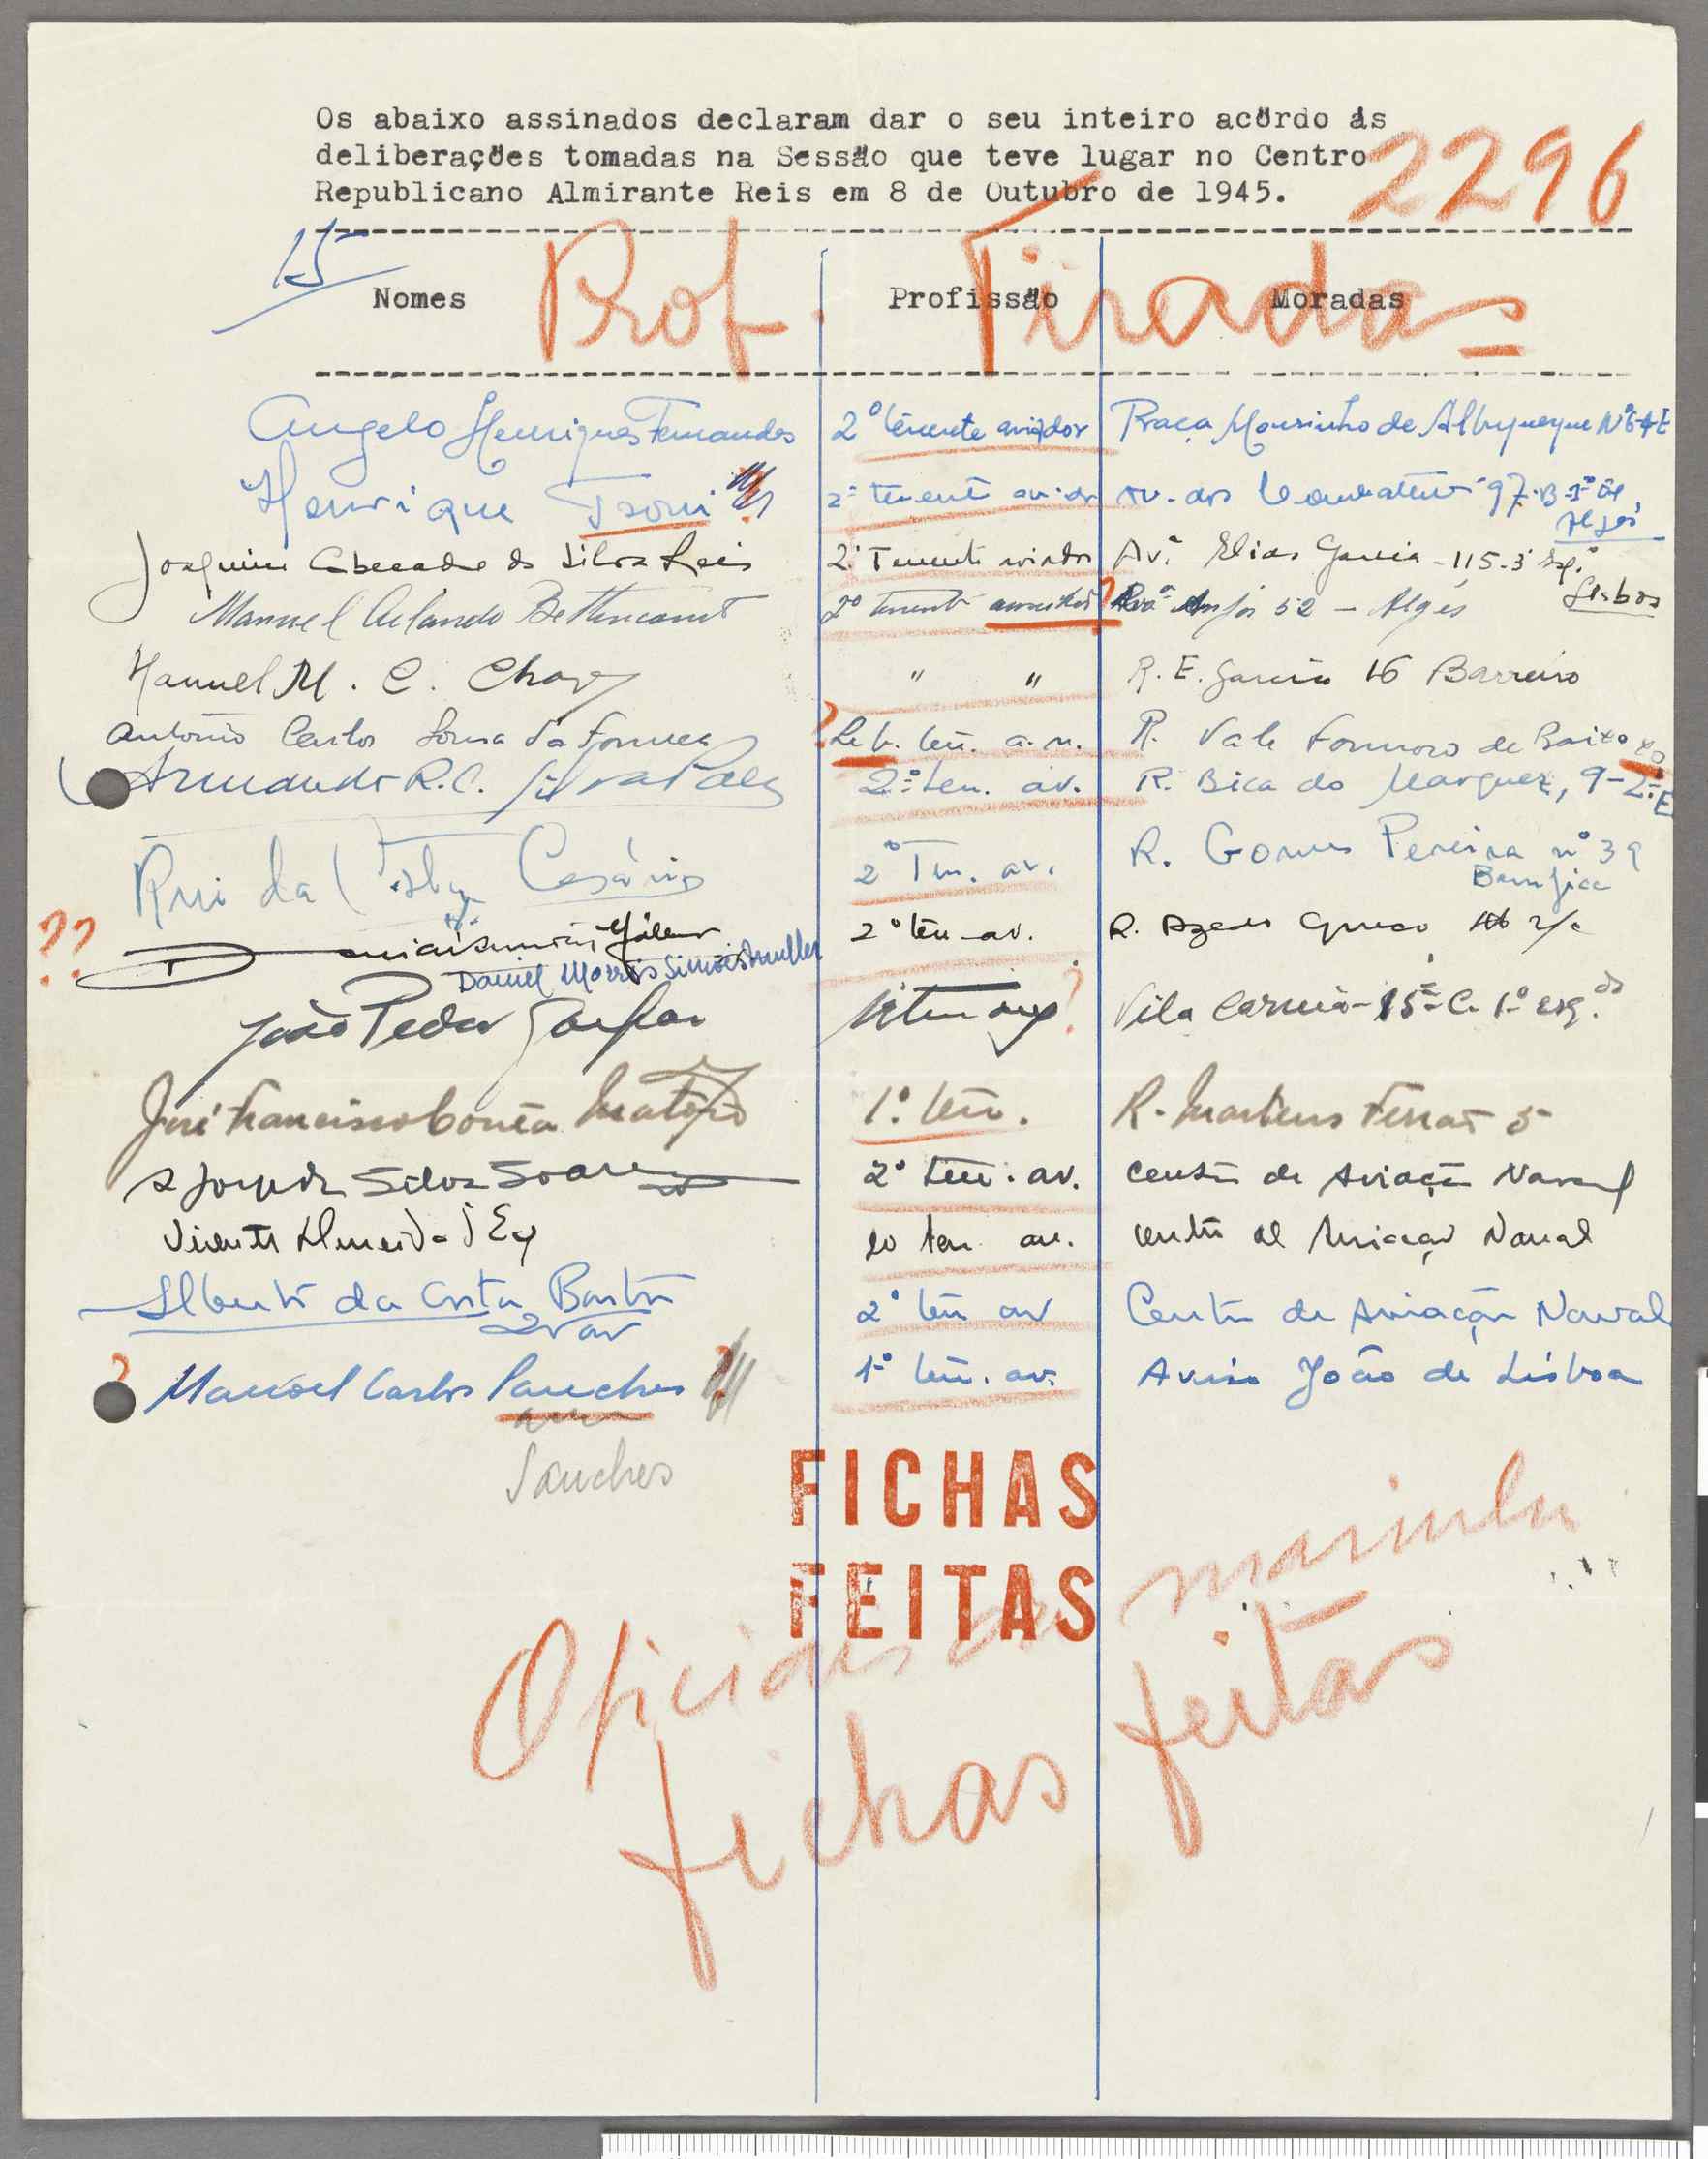 Os abaixo assinados declaram dar o seu inteiro acôrdo ás
deliberações tomadas na Sessão que teve lugar no Centro
Republicano Almirante Reis em 8 de Outubro de 1945.
2296
15
Nomes Profissão Moradas
Prof. Tiradas
Angelo Henriques Fernandes 2º tenente aviador Praça Mousinho de Albuquerque Nº 6 4 E
Henrique 2º tenente av. dos Combatentes 97-B-1º
Algés
Joaquim da Silva Reis 2º Tenente Avª Elias Garcia - 115-3º Esqº
Lisboa
Manuel Orlando Bettencourt 2º tenente 52 - Algés
Manuel M. C. Chaves " " R. E. Garcia 16 Barreiro
António Carlos Sousa da Fonseca ten. a.n. R. Vale Formoso de Baixo
Armando R.C. Silva Pais 2º ten. av. R. Bica do Marquez, 9-2º E
Rui da Cesário 2º Ten. av. R. Gomes Pereira nº 39
Benfica
?? 2º ten. av. R. r/c
Daniel Morris Simões Muller
João Pedro Gaspar ? Vila 1º esq.do
José Francisco Correia Matoso 1º ten. R. Martens Ferrão 5
Silva Soares 2º ten. av. Centro de Aviação Naval
Vicente Almeida d'Eça 2º ten. av. Centro de Aviação Naval
Alberto da Costa Bastos 2º ten av Centro de Aviação Naval
? Manoel Carlos Sanches ? 1º ten. av. Aviso João de Lisboa
Sanches
FICHAS
FEITAS
Oficiais de marinha
fichas feitas